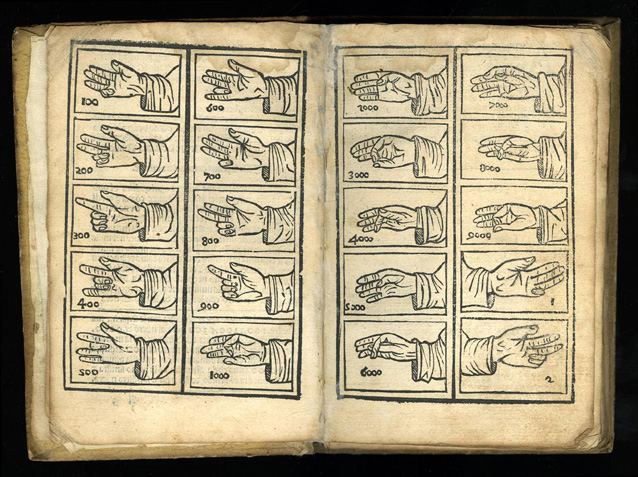 100
200
300
400
500
600
700
800
900
1000
2000
3000
4000
5000
6000
7000
8000
9000
1
2